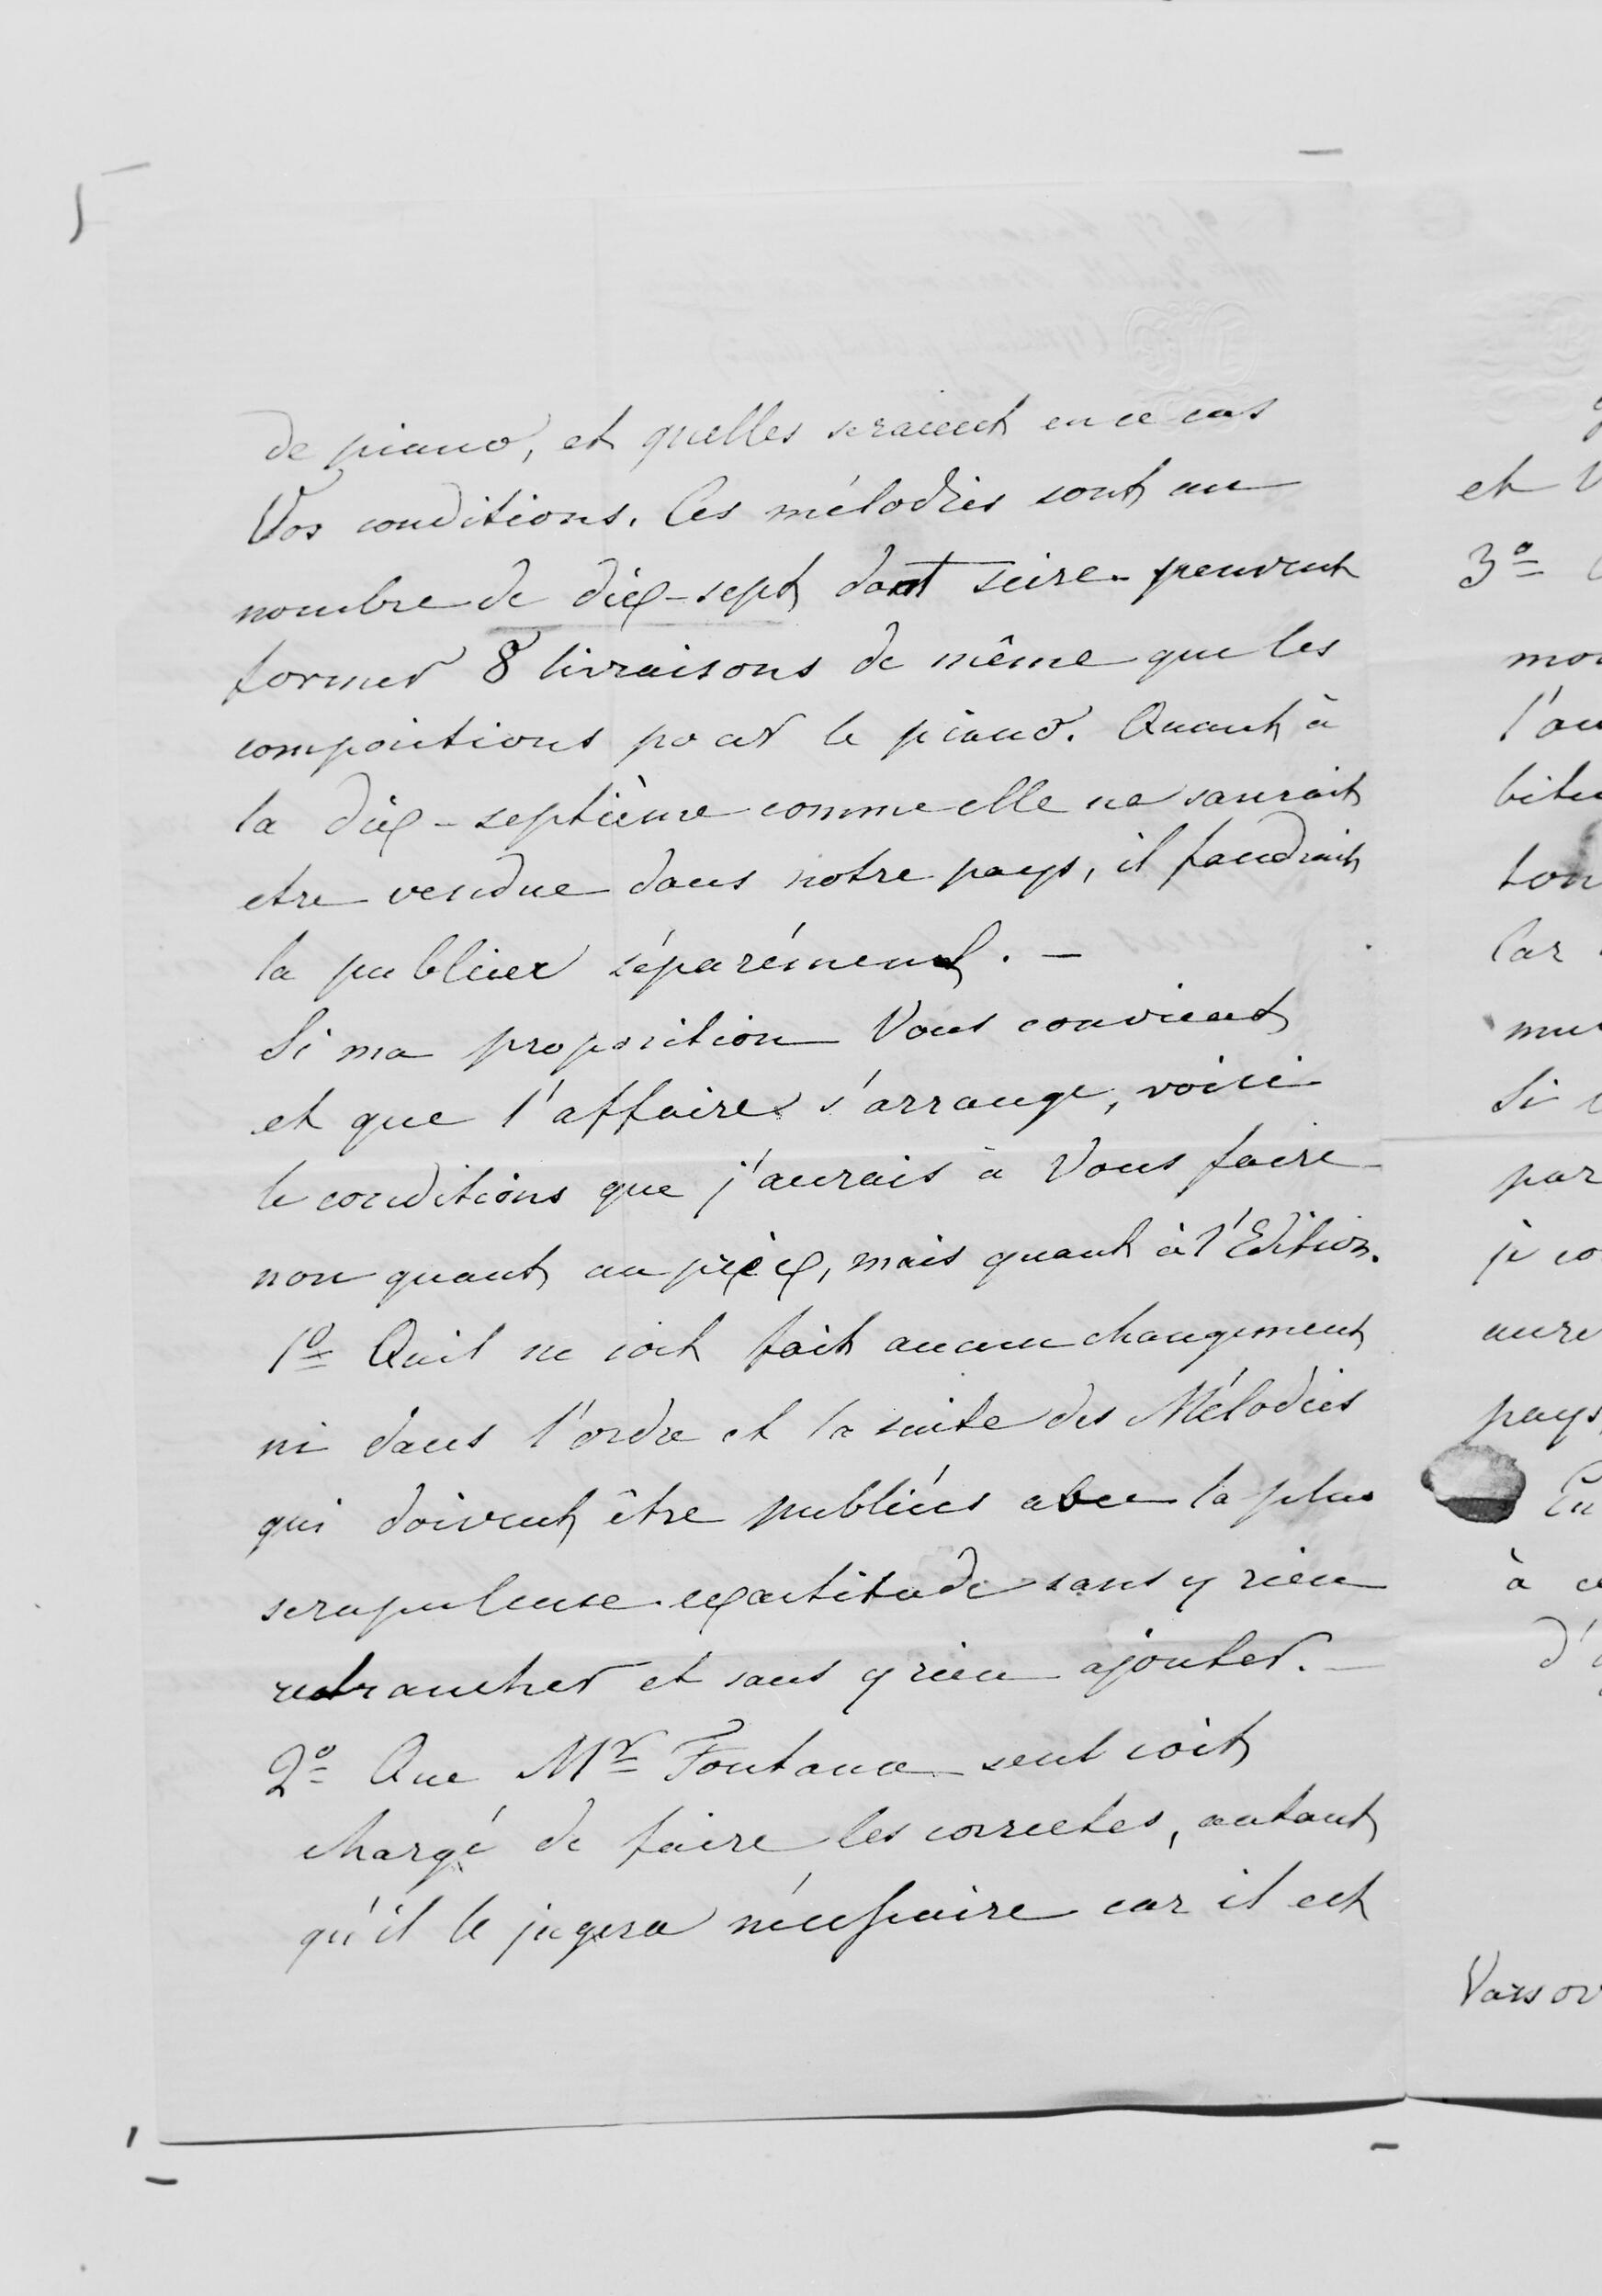 de piano, et quelles seraient en ce cas
Vos conditions. Ces mélodies sont au
nombre de dix-sept dont seize peuvent
former 8 livraisons de même que les
compositions pour le piano. Quant à
la dix-septième comme elle ne saurait
etre vendue dans notre pays, il faudrait
la publier séparément. –
Si ma proposition Vous convient
et que l'affaire s'arrange, voici
le conditions que j'aurais à Vous faire
non quant au prix, mais quant à l'Edition.
1º Qu'il ne soit fait aucun changement
ni dans l'ordre et la suite des Mélodies
qui doivent être publiées avec la plus
scrupuleuse exactitude sans y rien
retrancher et sans y rien ajouter. –
2º Que Mr Fontana seul soit
chargé de faire les correctes, autant
qu'il le jugera nécessaire car il est
et V
3º
mon
l'au
bitu
ton
Car
mu
Si
par
je co
aure
pays,
En
à ce
d'
Varsov